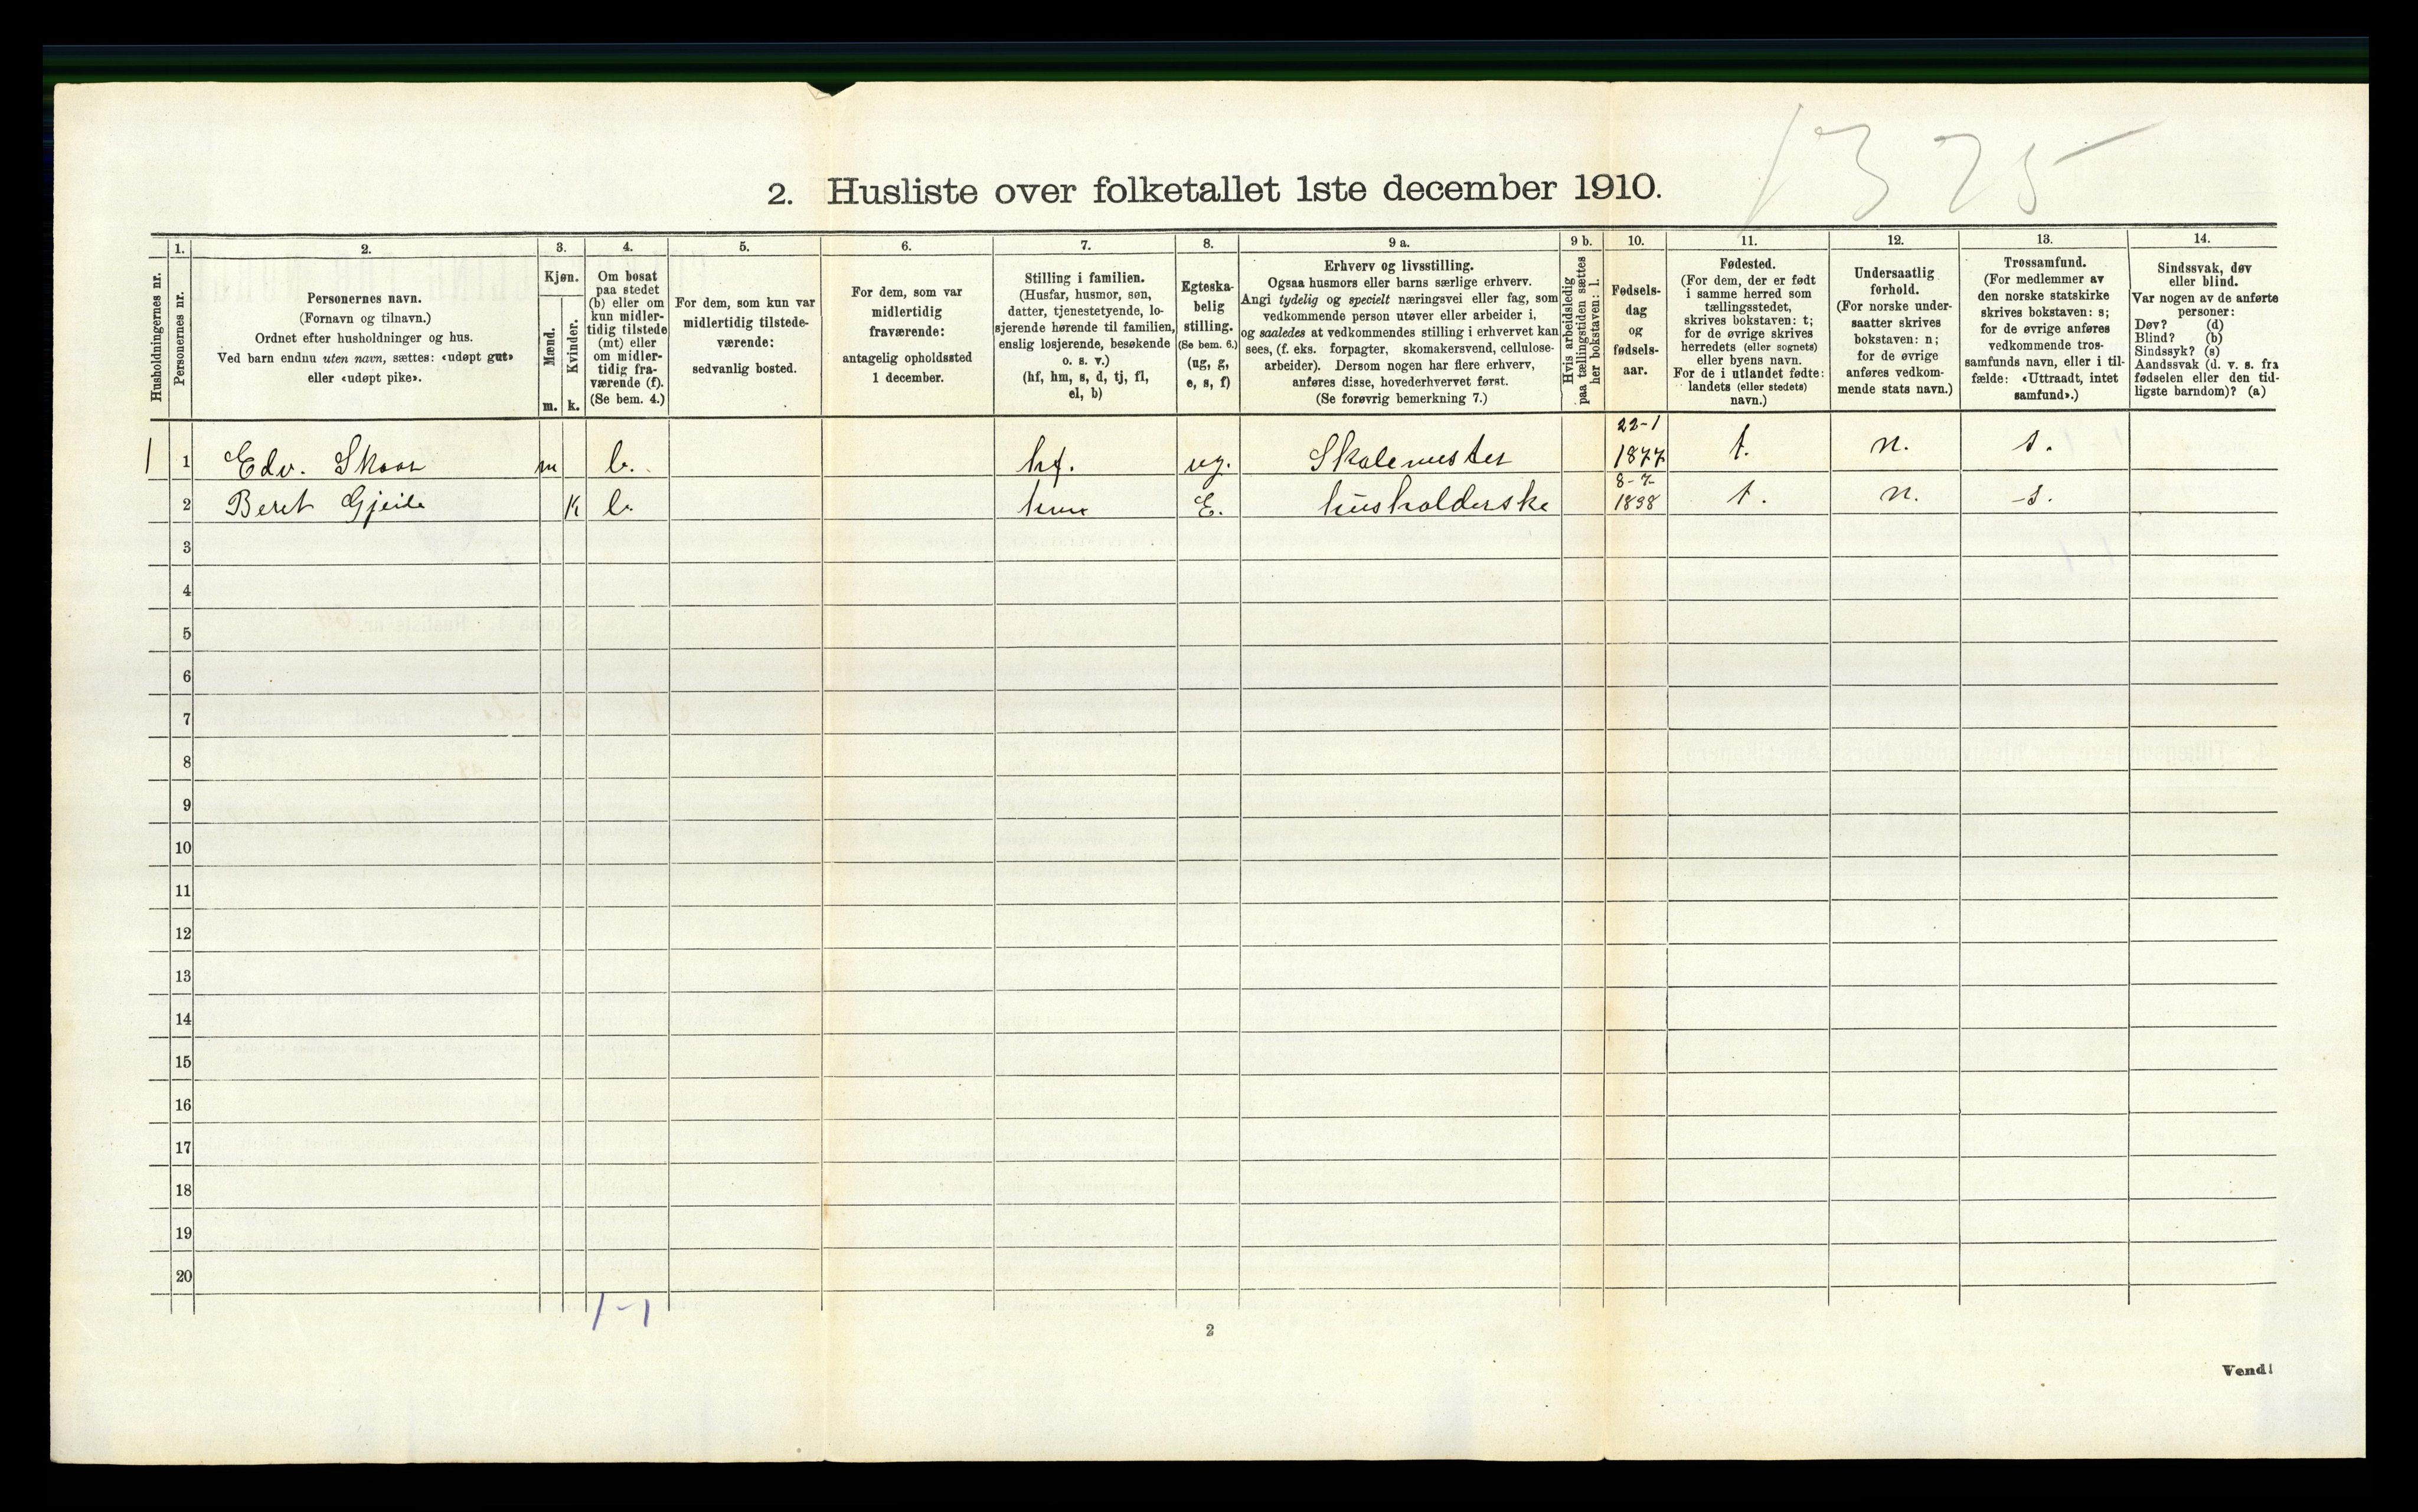 1325
2. Husliste over folketallet 1ste december 1910.
Husholdningernes nr.
1.
Personernes nr.
2.
Personernes navn.
(Fornavn og tilnavn.)
Ordnet efter husholdninger og hus.
Ved barn endnu uten navn, sættes: «udøpt gut»
eller «udøpt pike».
3.
Kjøn.
Mænd.
m.
Kvinder.
k.
4.
Om bosat
paa stedet
(b) eller om
kun midler-
tidig tilstede
(mt) eller
om midler-
tidig fra-
værende (f).
(Se bem. 4.)
5.
For dem, som kun var
midlertidig tilstede-
værende:
sedvanlig bosted.
6.
For dem, som var
midlertidig
fraværende:
antagelig opholdssted
1 december.
7.
Stilling i familien.
(Husfar, husmor, søn,
datter, tjenestetyende, lo-
sjerende hørende til familien,
enslig losjerende, besøkende
o. s. v.)
(hf, hm, s, d, tj, fl,
el, b)
8.
Egteska-
belig
stilling.
(Se bem. 6.)
(ug, g,
e, s, f)
9 a.
Erhverv og livsstilling.
Ogsaa husmors eller barns særlige erhverv.
Angi tydelig og specielt næringsvei eller fag, som
vedkommende person utøver eller arbeider i,
og saaledes at vedkommendes stilling i erhvervet kan
sees, (f. eks. forpagter, skomakersvend, cellulose-
arbeider). Dersom nogen har flere erhverv,
anføres disse, hovederhvervet først.
(Se forøvrig bemerkning 7.)
9 b.
Hvis arbeidsledig
paa tællingstiden sættes
her bokstaven: l.
10.
Fødsels-
dag
og
fødsels-
aar.
11.
Fødested.
(For dem, der er født
i samme herred som
tællingsstedet,
skrives bokstaven: t;
for de øvrige skrives
herredets (eller sognets)
eller byens navn.
For de i utlandet fødte:
landets (eller stedets)
navn.)
12.
Undersaatlig
forhold.
(For norske under-
saatter skrives
bokstaven: n;
for de øvrige
anføres vedkom-
mende stats navn.)
13.
Trossamfund.
(For medlemmer av
den norske statskirke
skrives bokstaven: s;
for de øvrige anføres
vedkommende tros-
samfunds navn, eller i til-
fælde: «Uttraadt, intet
samfund».)
14.
Sindssvak, døv
eller blind.
Var nogen av de anførte
personer:
Døv? (d)
Blind? (b)
Sindssyk? (s)
Aandssvak (d. v. s. fra
fødselen eller den tid-
ligste barndom)? (a)
1 1 Edv. Skaar m b. hf. ug. Skolemester 22-1 1877 t. n. s.
2 Beret Gjeide K b. E. husholderske 8-7- 1838 t. n. s.
3
4
5
6
7
8
9
10
11
12
13
14
15
16
17
18
19
20
1-1
2
Vend!